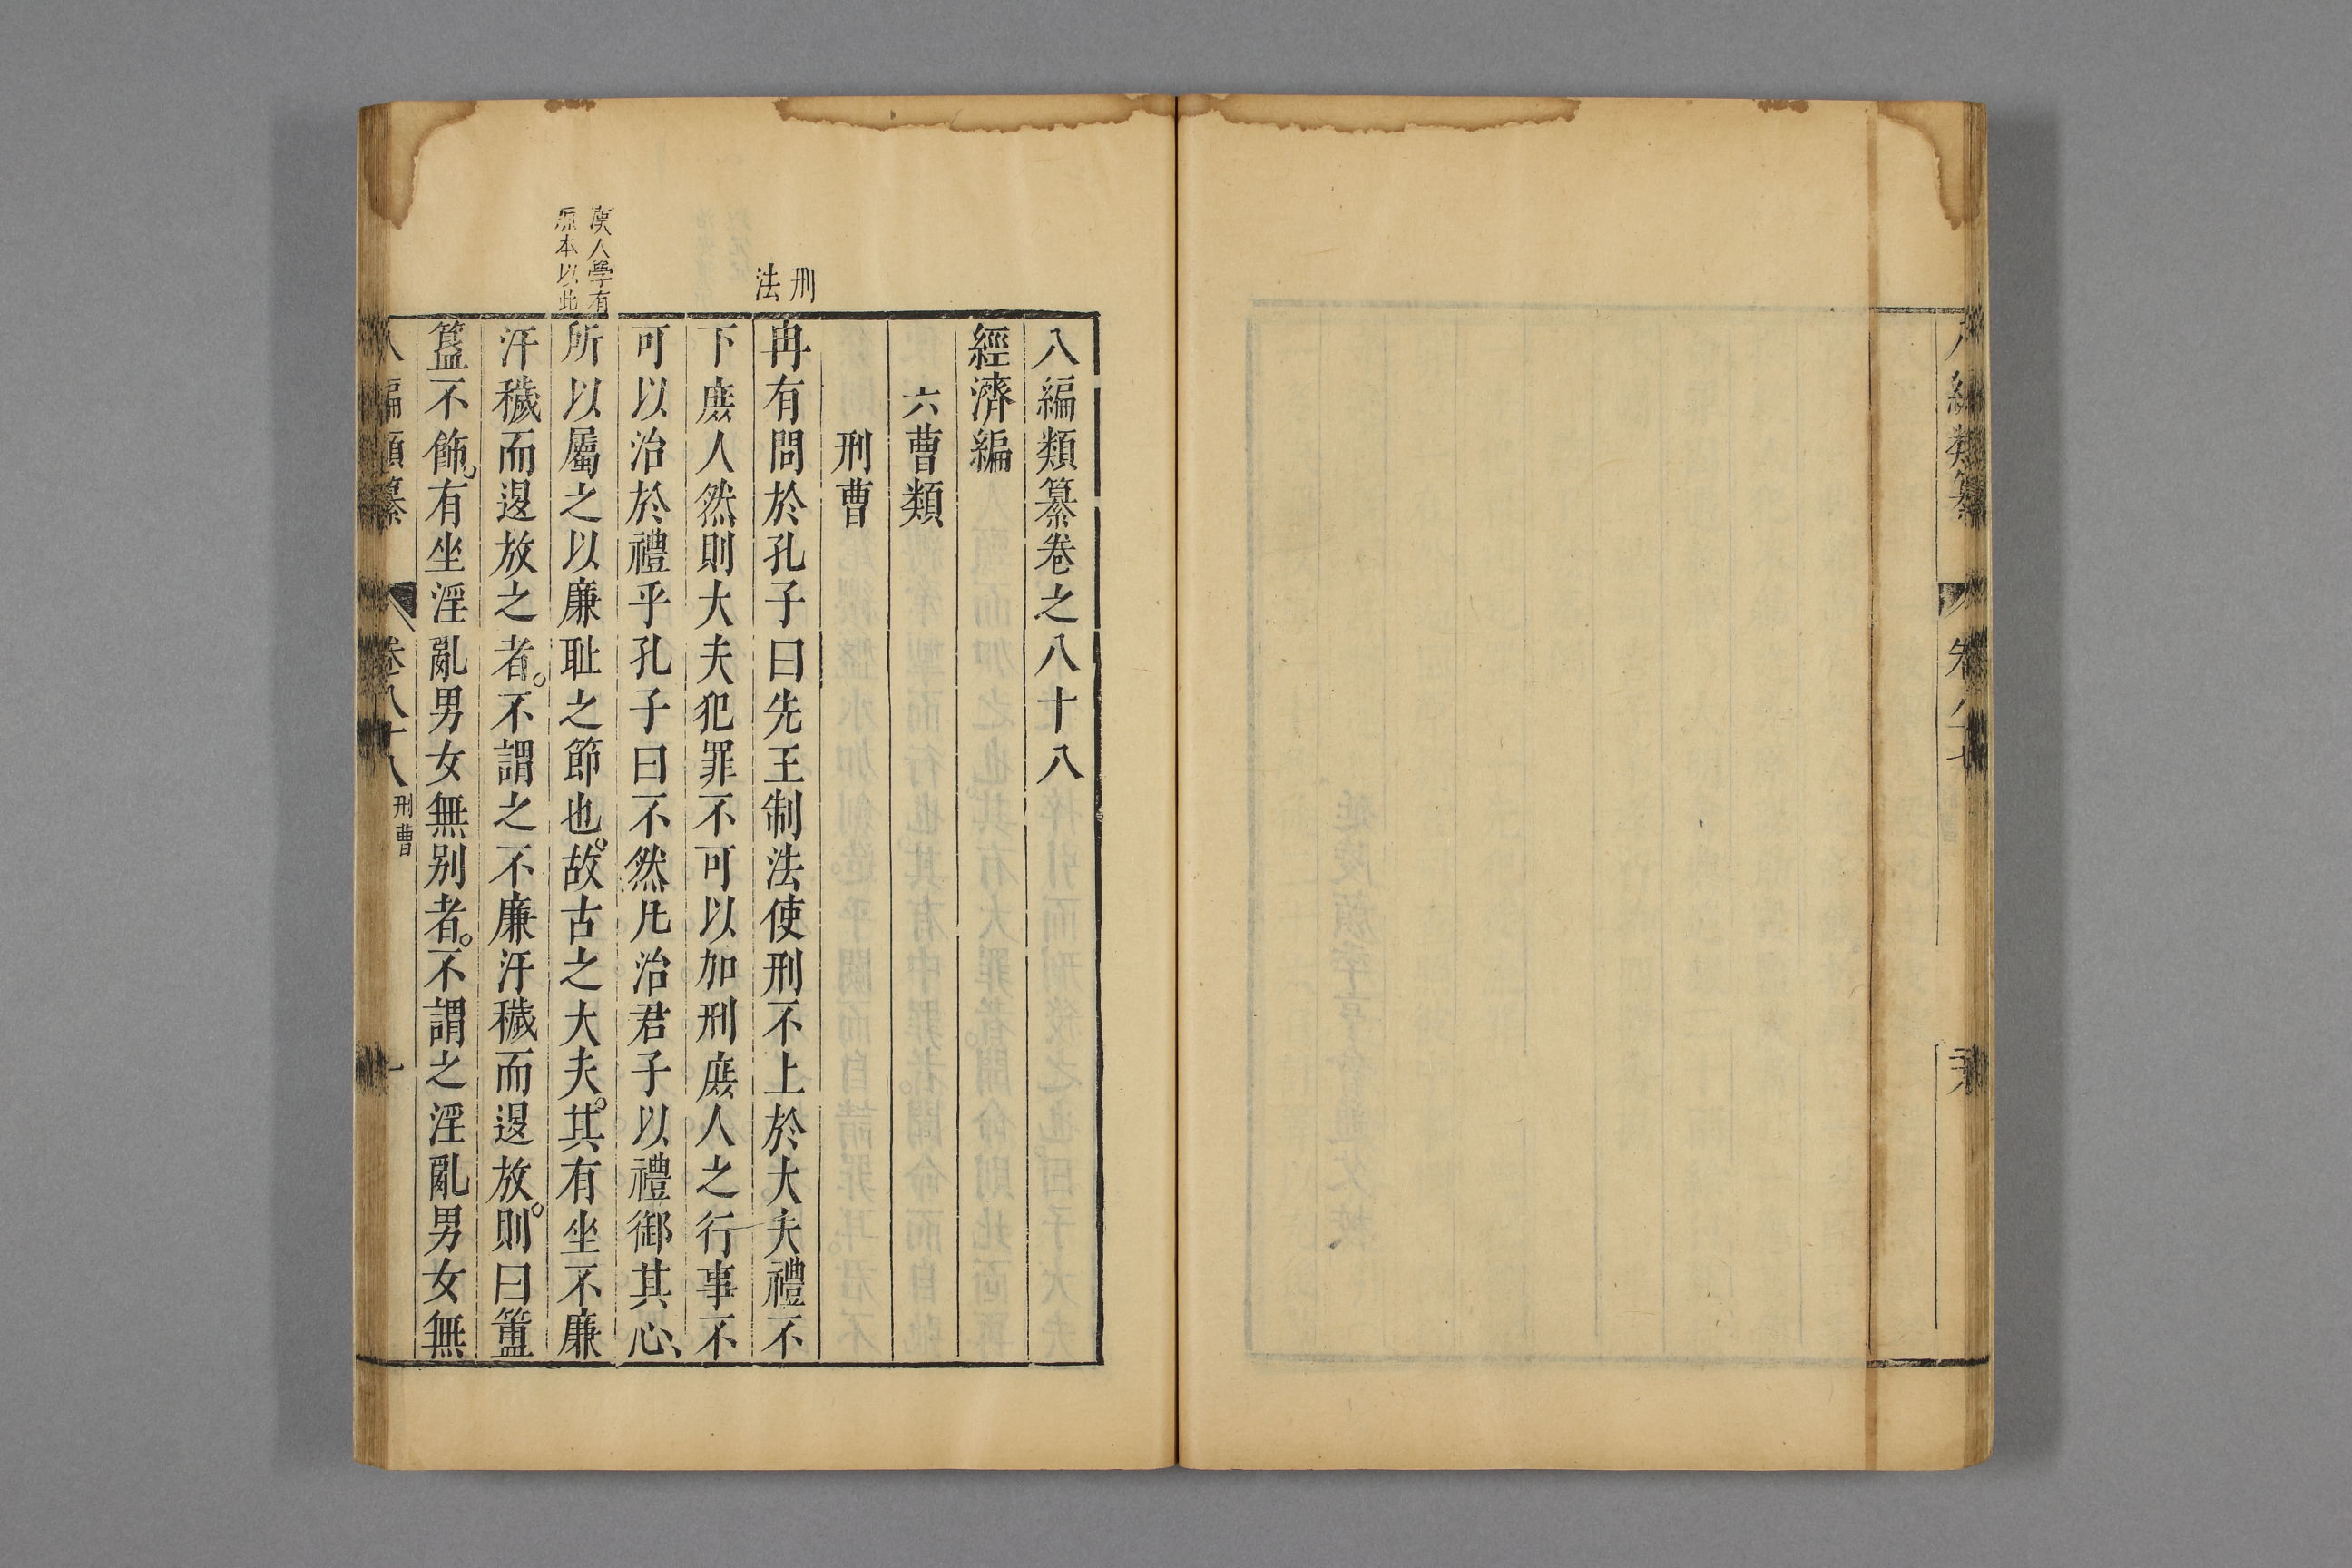 八編類纂卷之八十八
經濟編
六曹類
刑曹
刑
法
冉有問於孔子曰先王制法使刑不上於大夫禮不
下庻人然則大夫犯罪不可以加刑庻人之行事不
可以治於禮乎孔子曰不然凡治君子以禮御其心、
漢人學有
原本以此
所以屬之以廉耻之節也。故古之大夫。其有坐不廉
汙穢而退放之者。不謂之不廉汙穢而退放。則曰簠
簋不飾。有坐淫亂男女無别者。不謂之淫亂男女無
八編類纂 卷八十八 刑曹 一